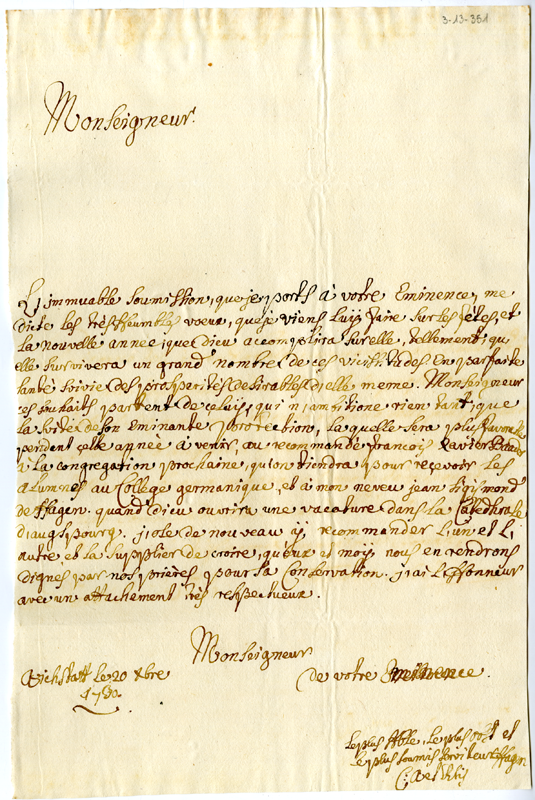 3-13-361
Monseigneur.
L'immuable soumission, que je porte à votre Eminence, me
dicte les très heumbles voeux, que je viens Luij faire sur les fêtes, et
la nouvelle année; que Dieu accomplira surelle, tellement, qu
elle survivera un grand nombre de ces vicissitudes en parfaite
santé suivie des prosperités desirables d'elle meme. Monseigneur
ces souhaits partent de celuij, qui n'ambitione rien tant, que
la de son eminante protection, la quelle sera plus
pendent cette année à venir, au recommandé françois Xavier
à la congregation prochaine, qu'on tiendra pour reçevoir les
alumnes au College germanique, et à mon neveu jean sigismond
de quand Dieu ouvrira une vacature dans la Catedhrale
d'augspourg. j'ose de nouveau aij recommander L'un et L'
autre et la supplier de croire, qu'eux et moij nous en rendrons
dignes par nos prières pour sa Conservation. j'ai L'honneur
avec un attachement très respectueux.
Monseigneur
de votre Eminence.
Eichstatt le 20 xbre
1730.
Le plus Le plus et
le plus soumis serviteur